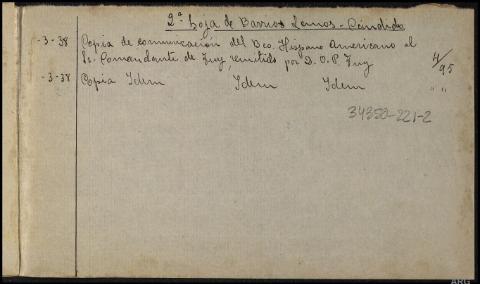 2ª Hoja de Barrios Lemos - Cándido
-3-38 Copia de comunicación del Bco. Hispano Americano al
Sr. Comandante de Tuy, remitido por D. O. P. Tuy 4/95
-3-38 Copia Idem Idem Idem " "
34350-221-2
ARG